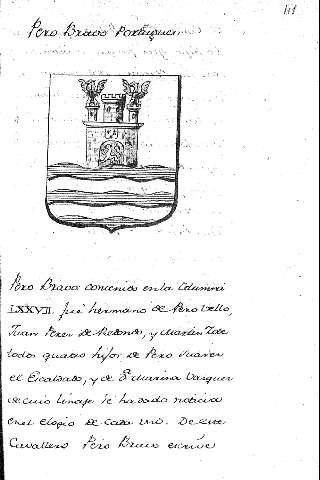 Pero Bravo Portugues.
Pero Bravo contenido en la Columna
LXXVII. fué hermano de Pero vello,
Juan Perez de Redondo, y Martin
todos quatro hijos de Pero Suarez
el Escaldado, y de D.ª Marina Vazquez
de cuio linaje se ha dado noticia
en el elogio de cada uno. De este
Cavallero Pero Bravo escrive